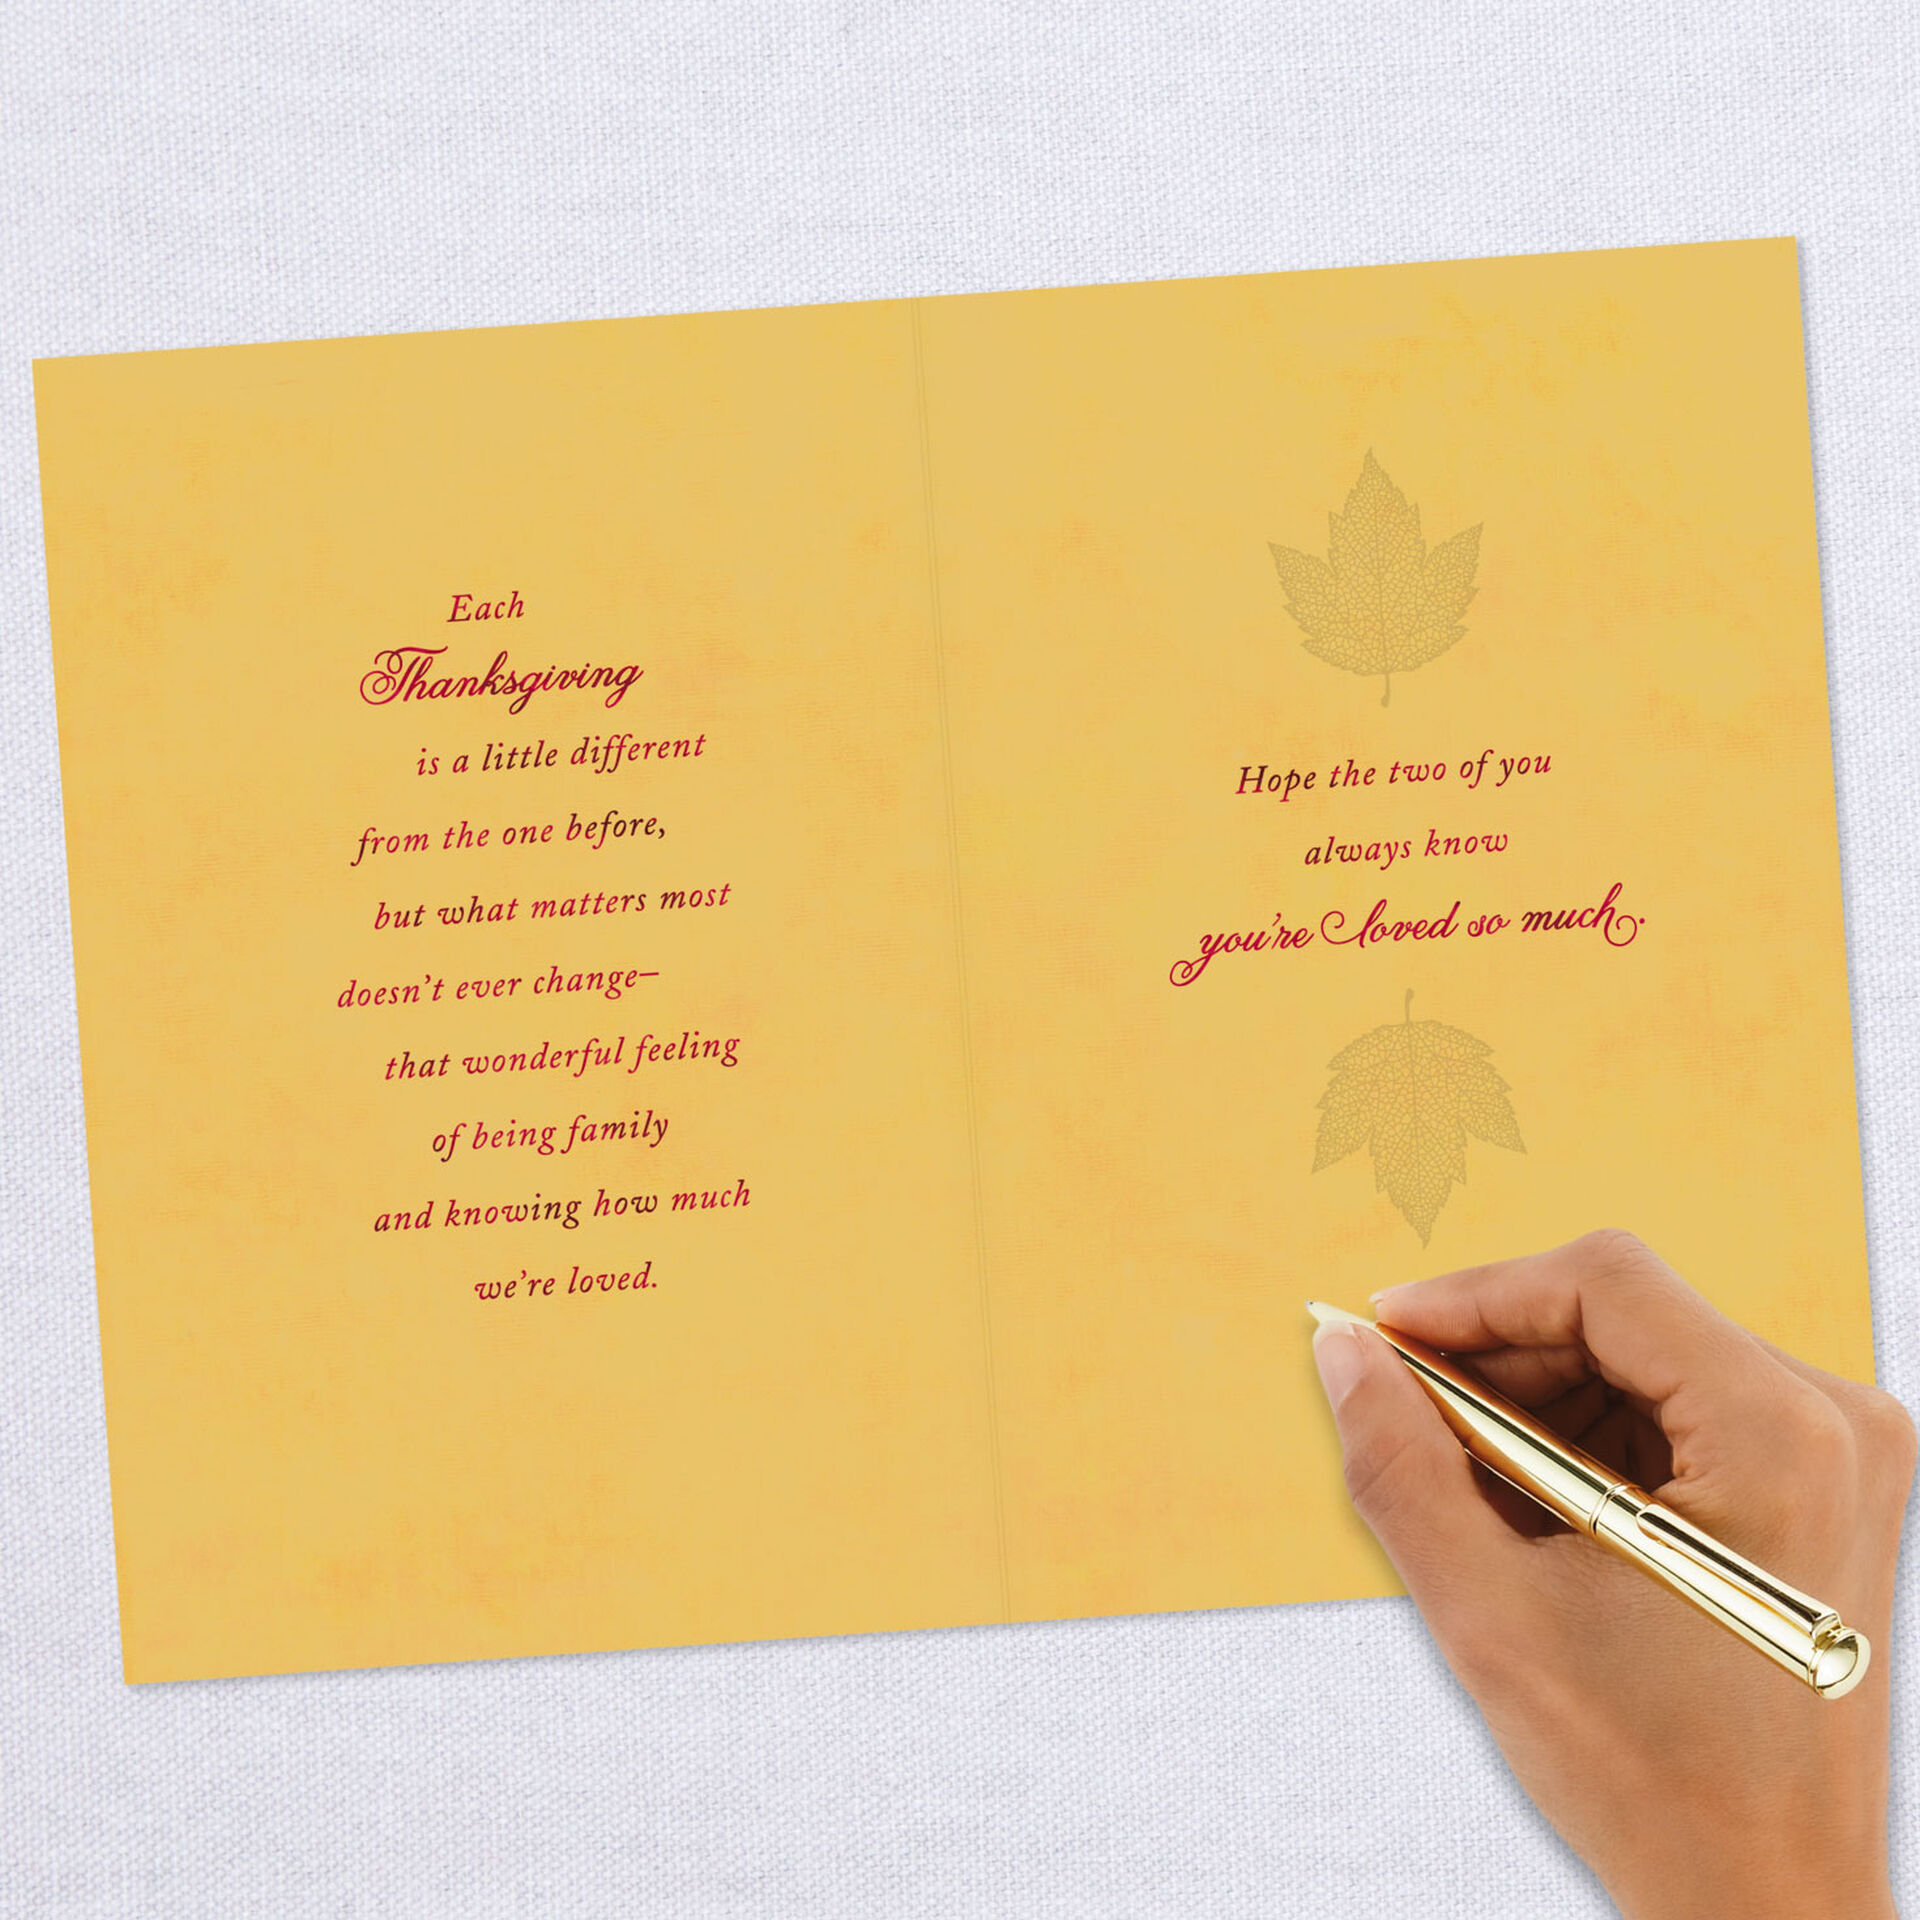 Each
Thanksgiving
is a little different
from the one before,
but what matters most
doesn't ever change–
that wonderful feeling
of being family
and knowing how much
we're loved.
Hope the two of you
always know
you're loved so much.